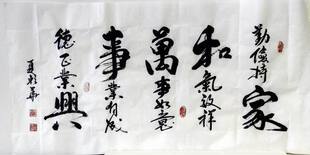 勤儉持家
和氣致祥
萬事如意
事業有成
德正業興